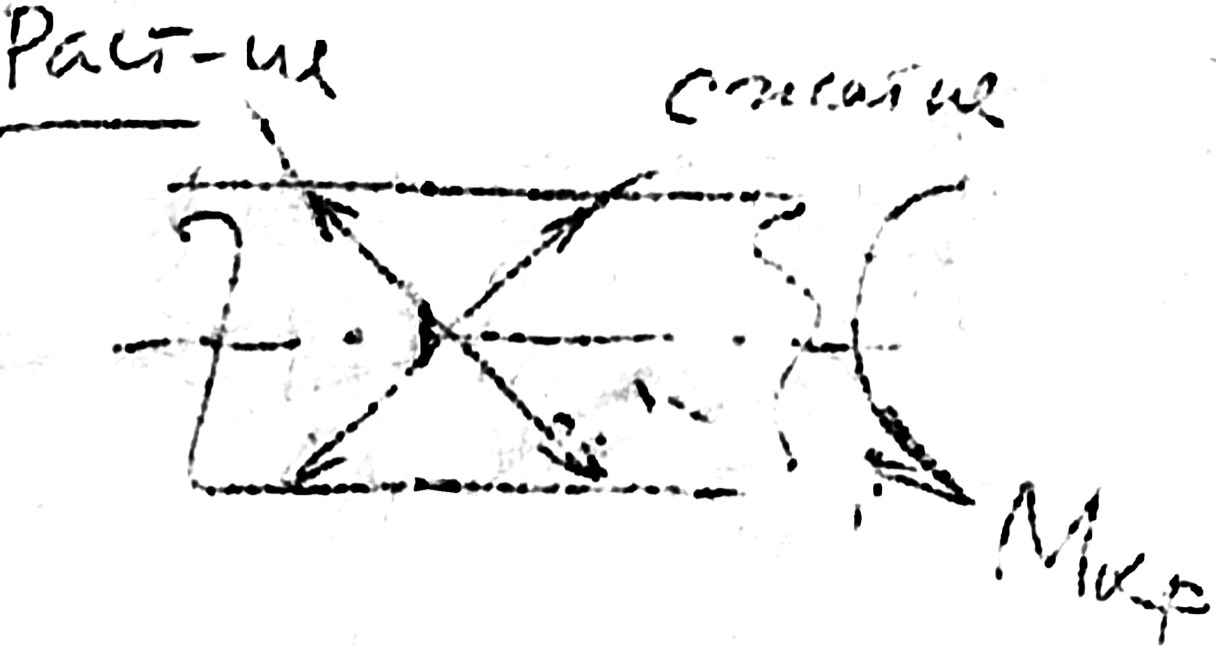 Раст-ие
сжатие
Мкр